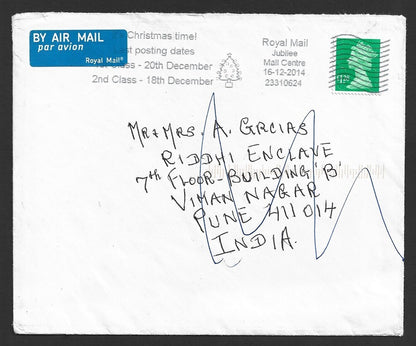 BY AIR MAIL
par avion
Royal Mail®
Christmas time!
Last posting dates
Class - 20th December
2nd Class - 18th December
Royal Mail
Jubilee
Mail Centre
16-12-2014
23310624
MR & MRS. A. GRCIAS
RIDDHI ENCLAVE
7th FLOOR-BUILDING 'B'
VIMAN NAGAR
PUNE 411014
INDIA.